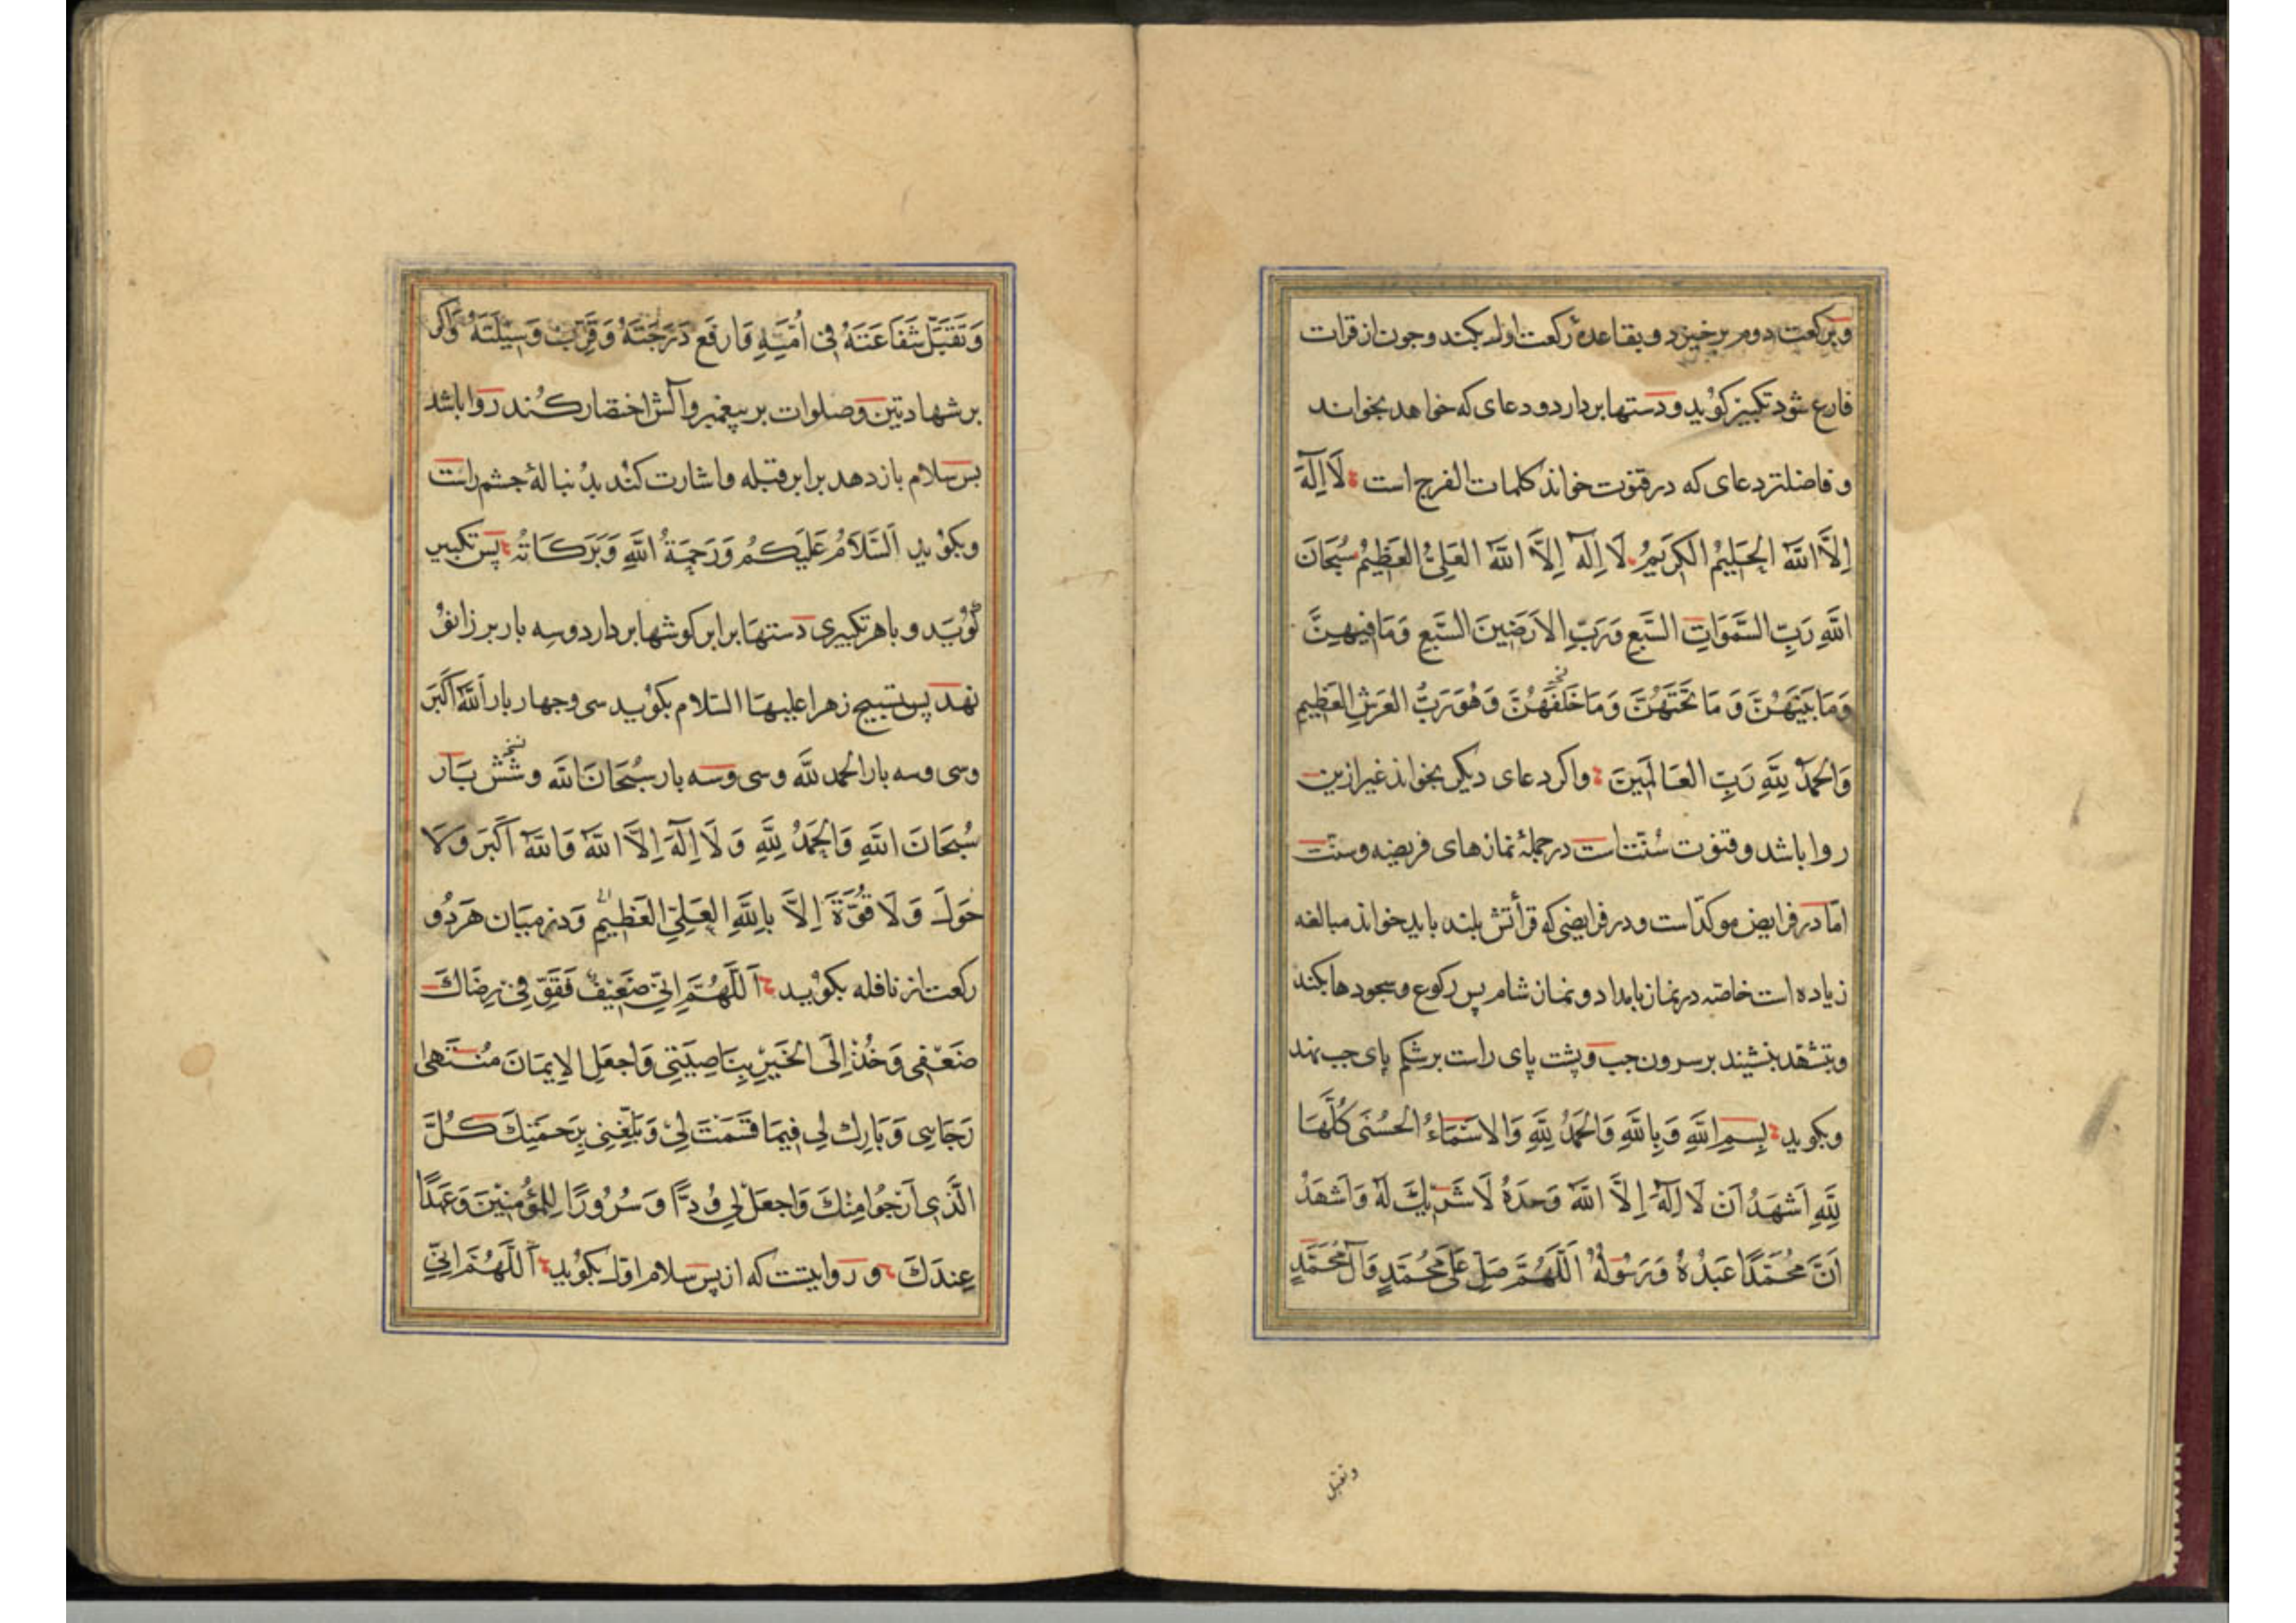 وبرکعت دوم برخیزد و بقاعدهٔ رکعت اول بکند وجون از قرات
فارغ شود تکبیر کوید ودستها بردارد و دعای که خواهد بخواند
وفاضلتر دعای که در قنوت خواند کلمات الفرج است لَا اِلٰهَ
اِلَّا اللّٰهُ الحَلِيْمُ الكَرِيْمُ لَا اِلٰهَ اِلَّا اللّٰهُ العَلِيُّ العَظِيْمُ سُبْحَانَ
اللّٰهِ رَبِّ السَّمٰوَاتِ السَّبْعِ وَرَبِّ الاَرَضِينَ السَّبْعِ وَمَا فِيْهِنَّ
وَمَا بَيْنَهُنَّ وَ مَا تَحْتَهُنَّ وَمَا خَلْفَهُنَّ وَهُوَ رَبُّ العَرْشِ العَظِيْمِ
وَالحَمْدُ لِلّٰهِ رَبِّ العَالَمِيْنَ واکر دعای دیکر بخواند غیر ازین
روا باشد وقنوت سُنّت است در جملهٔ نمازهای فریضه وسنّت
امّا در فرایض موکدّ است ودر فرایضی که قرأتش بلند باید خواند مبالغه
زیاده است خاصّه در نماز بامداد ونماز شام پس رکوع وسجودها بکند
وبتشهّد بنشیند بر سرون جب وپشت پای راست بر شکم پای جب نهد
وبکوید بِسْمِ اللّٰهِ وَبِاللّٰهِ وَالحَمْدُ لِلّٰهِ وَالاَسْمَاءُ الحُسْنٰى كُلُّهَا
لِلّٰهِ اَشْهَدُ اَنْ لَا اِلٰهَ اِلَّا اللّٰهُ وَحْدَهُ لَا شَرِيْكَ لَهُ وَاَشْهَدُ
اَنَّ مُحَمَّدًا عَبْدُهُ وَرَسُوْلُهُ اَللّٰهُمَّ صَلِّ عَلٰى مُحَمَّدٍ وَآلِ مُحَمَّدٍ
وتقبل
وَتَقَبَّلْ شَفَاعَتَهُ فِى اُمَّتِهِ وَارْفَعْ دَرَجَتَهُ وَقَرِّبْ وَسِيْلَتَهُ واکر
بر شهادتین وصلوات بر پیغمبر وآلش اختصار کند روا باشد
پس سلام باز دهد برابر قبله واشارت کند بدنبالهٔ جشم راست
وبکوید اَلسَّلَامُ عَلَيْكُمْ وَرَحْمَةُ اللّٰهِ وَبَرَكَاتُهُ پس تکبیر
کوید و باهر تکبیری دستها برابر کوشها بردارد وسه بار بر زانو
نهد پس تسبیح زهرا علیها السّلام بکوید سی وجهار بار اَللّٰهُ اَكْبَر
وسی وسه بار الحمد لله وسی وسه بار سُبْحَانَ الله وشش بار
سُبْحَانَ اللّٰهِ وَالحَمْدُ لِلّٰهِ وَ لَا اِلٰهَ اِلَّا اللّٰهُ وَاللّٰهُ اَكْبَرُ وَ لَا
حَوْلَ وَ لَا قُوَّةَ اِلَّا بِاللّٰهِ العَلِيِّ العَظِيْمِ ودر میان هر دو
رکعت از نافله بکوید اَللّٰهُمَّ اِنِّى ضَعِيْفٌ فَقَوِّ فِى رِضَاكَ
ضَعْفِى وَخُذْ اِلَى الخَيْرِ بِنَاصِيَتِى وَاجْعَلِ الاِيْمَانَ مُنْتَهٰى
رَجَاىِٕى وَبَارِكْ لِى فِيْمَا قَسَمْتَ لِى وَبَلِّغْنِى بِرَحْمَتِكَ كُلَّ
الَّذِى اَرْجُوا مِنْكَ وَاجْعَلْ لِى وُدًّا وَ سُرُوْرًا لِلْمُؤْمِنِيْنَ وَعَهْدًا
عِنْدَكَ و روایتست که از پس سلام اوّل بکوید اَللّٰهُمَّ اِنِّى